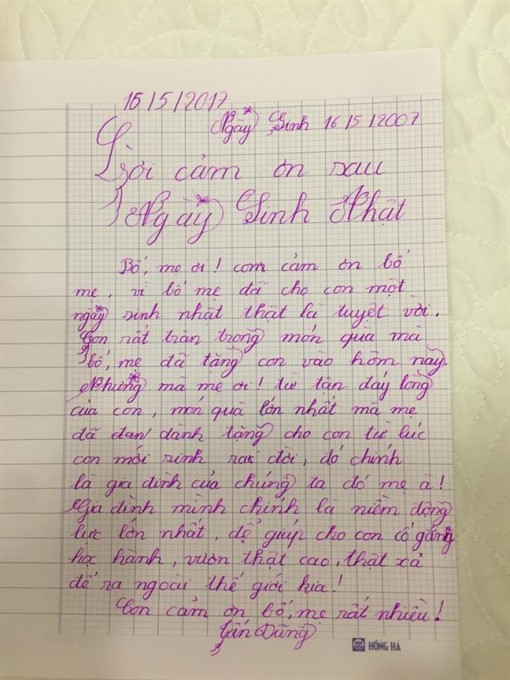 15/5/2017
Ngày Sinh 16/5/2007
Lời cảm ơn sau
Ngày Sinh Nhật
Bố, mẹ ơi! con cảm ơn bố
mẹ, vì bố mẹ đã cho con một
ngày sinh nhật thật là tuyệt vời.
Con rất trân trọng món quà mà
bố, mẹ đã tặng con vào hôm nay.
Nhưng mà mẹ ơi! từ tận đáy lòng
của con, món quà lớn nhất mà mẹ
đã đan dành tặng cho con từ lúc
con mới sinh ra đời, đó chính
là gia đình của chúng ta đó mẹ à!
Gia đình mình chính là niềm động
lực lớn nhất, để giúp cho con cố gắng
học hành, vươn thật cao, thật xa
để ra ngoài thế giới kia!
Con cảm ơn bố, mẹ rất nhiều!
Tấn Dũng
HỒNG HÀ